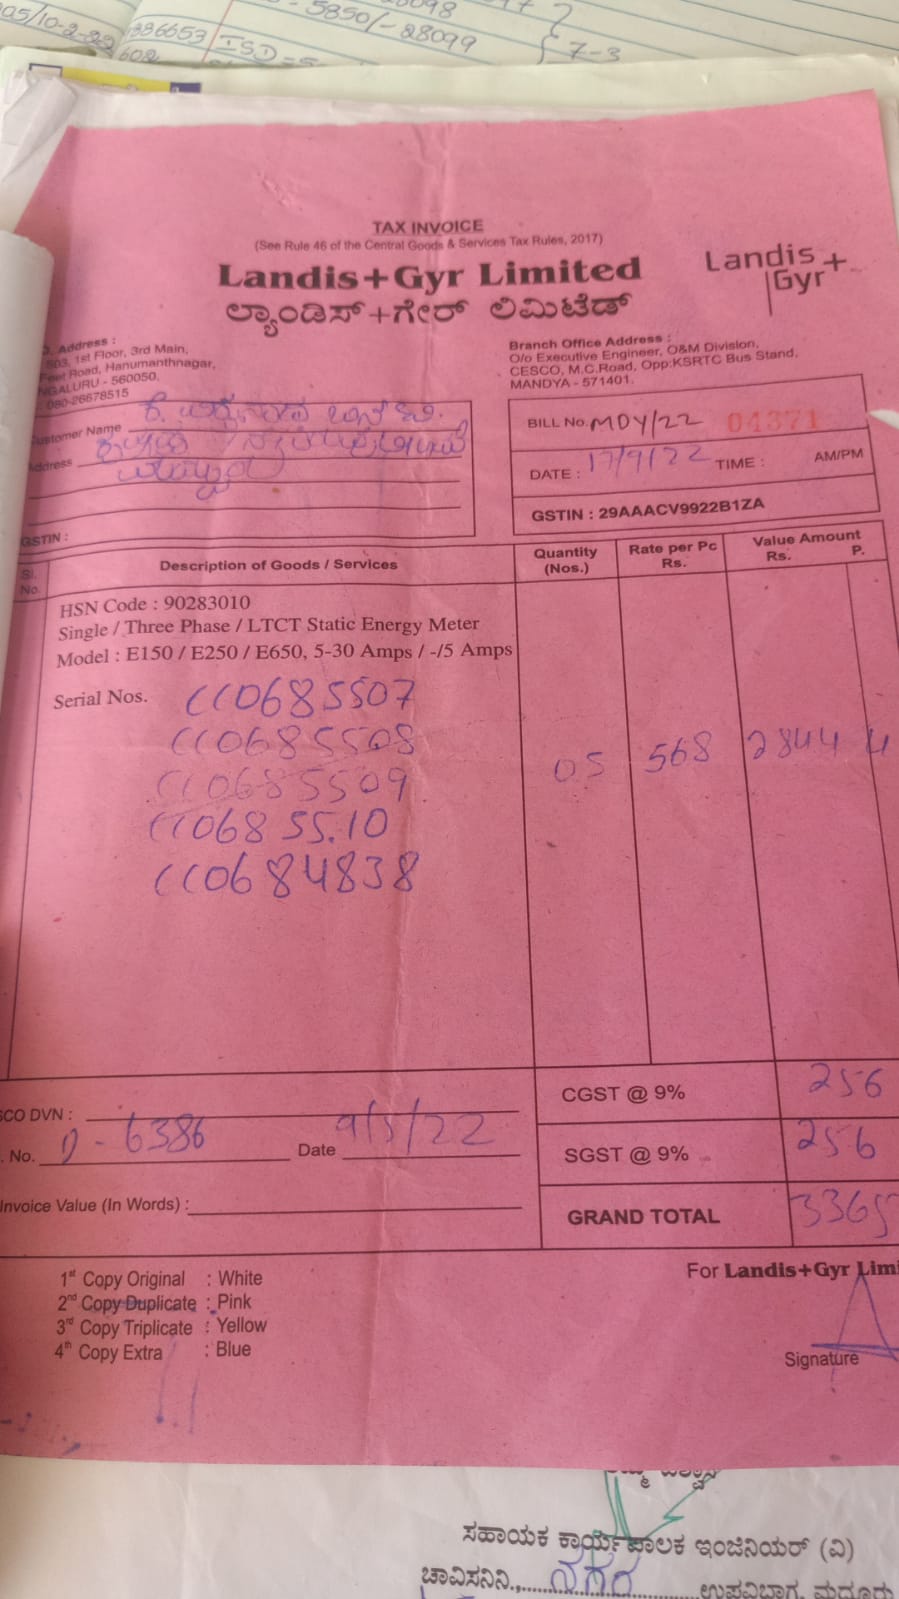 05/10-2-22
5850/- 28099
7-3
TAX INVOICE
(See Rule 46 of the Central Goods & Services Tax Rules, 2017)
Landis+Gyr Limited
ಲ್ಯಾಂಡಿಸ್+ಗೇರ್ ಲಿಮಿಟೆಡ್
Landis+
Gyr
Address :
503, 1st Floor, 3rd Main,
Feet Road, Hanumanthnagar,
NGALURU - 560050.
080-26678515
Branch Office Address :
O/o Executive Engineer, O&M Division,
CESCO, M.C.Road, Opp:KSRTC Bus Stand,
MANDYA - 571401.
Customer Name
Address
GSTIN :
BILL No. MDY/22 04371
DATE : 17/9/22 TIME : AM/PM
GSTIN : 29AAACV9922B1ZA
Sl. No. Description of Goods / Services Quantity (Nos.) Rate per Pc Rs. Value Amount Rs. P.
HSN Code : 90283010
Single / Three Phase / LTCT Static Energy Meter
Model : E150 / E250 / E650, 5-30 Amps / -/5 Amps
Serial Nos. CC0685507
CC0685508
CC0685509
CC0685510
CC0684838
05 568 2844 4
CGST @ 9% 256
SCO DVN :
No. D-6386 Date 9/5/22
SGST @ 9% 256
Invoice Value (In Words) :
GRAND TOTAL 3365
1st Copy Original : White
2nd Copy Duplicate : Pink
3rd Copy Triplicate : Yellow
4th Copy Extra : Blue
For Landis+Gyr Lim
Signature
ಸಹಾಯಕ ಕಾರ್ಯಪಾಲಕ ಇಂಜಿನಿಯರ್ (ವಿ)
ಚಾವಿಸನಿನಿ., ನಗರ ಉಪವಿಭಾಗ, ಮದ್ದೂರು